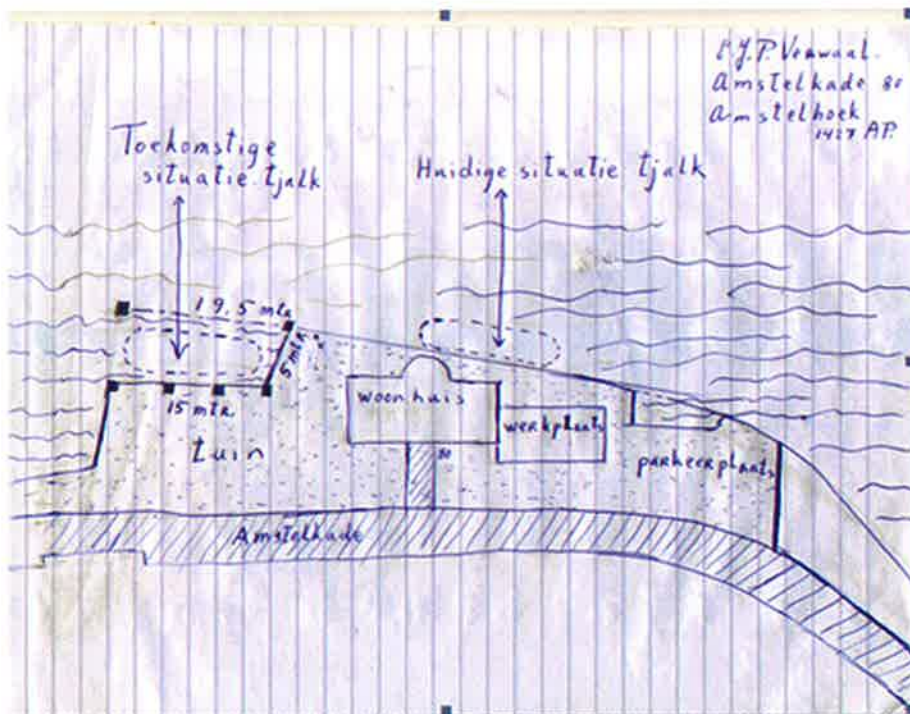 P.J.P. Verwaal.
Amstelkade 80
Amstelhoek
1427 AP.
Toekomstige
situatie tjalk
Huidige situatie tjalk
19,5 mtr
5 mtr.
15 mtr.
tuin
woonhuis
80
werkplaats
parkeerplaats
Amstelkade